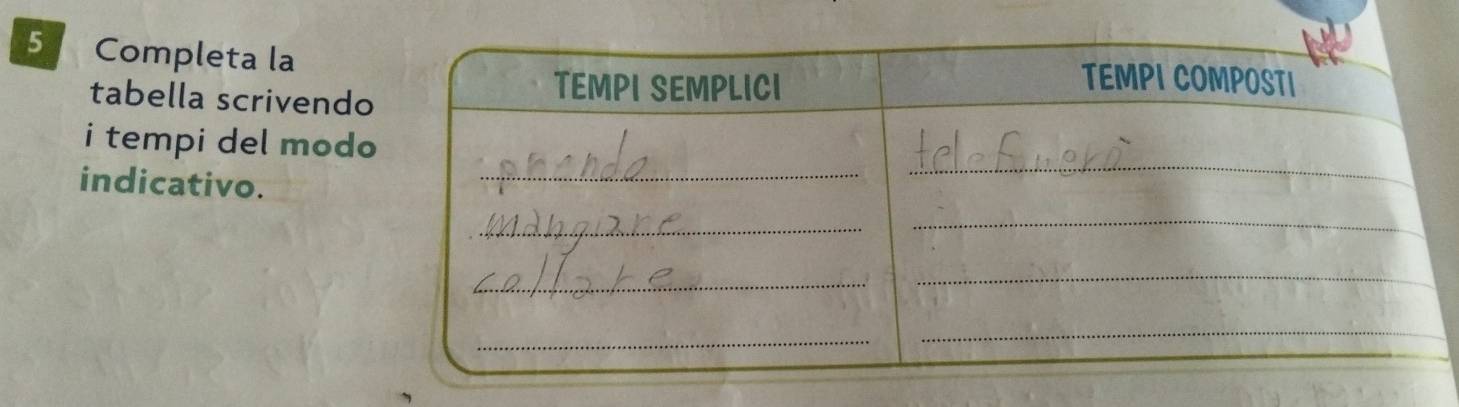 5 Completa la
tabella scrivendo
i tempi del modo
indicativo.
TEMPI SEMPLICI TEMPI COMPOSTI
prendo
mangiare
collare